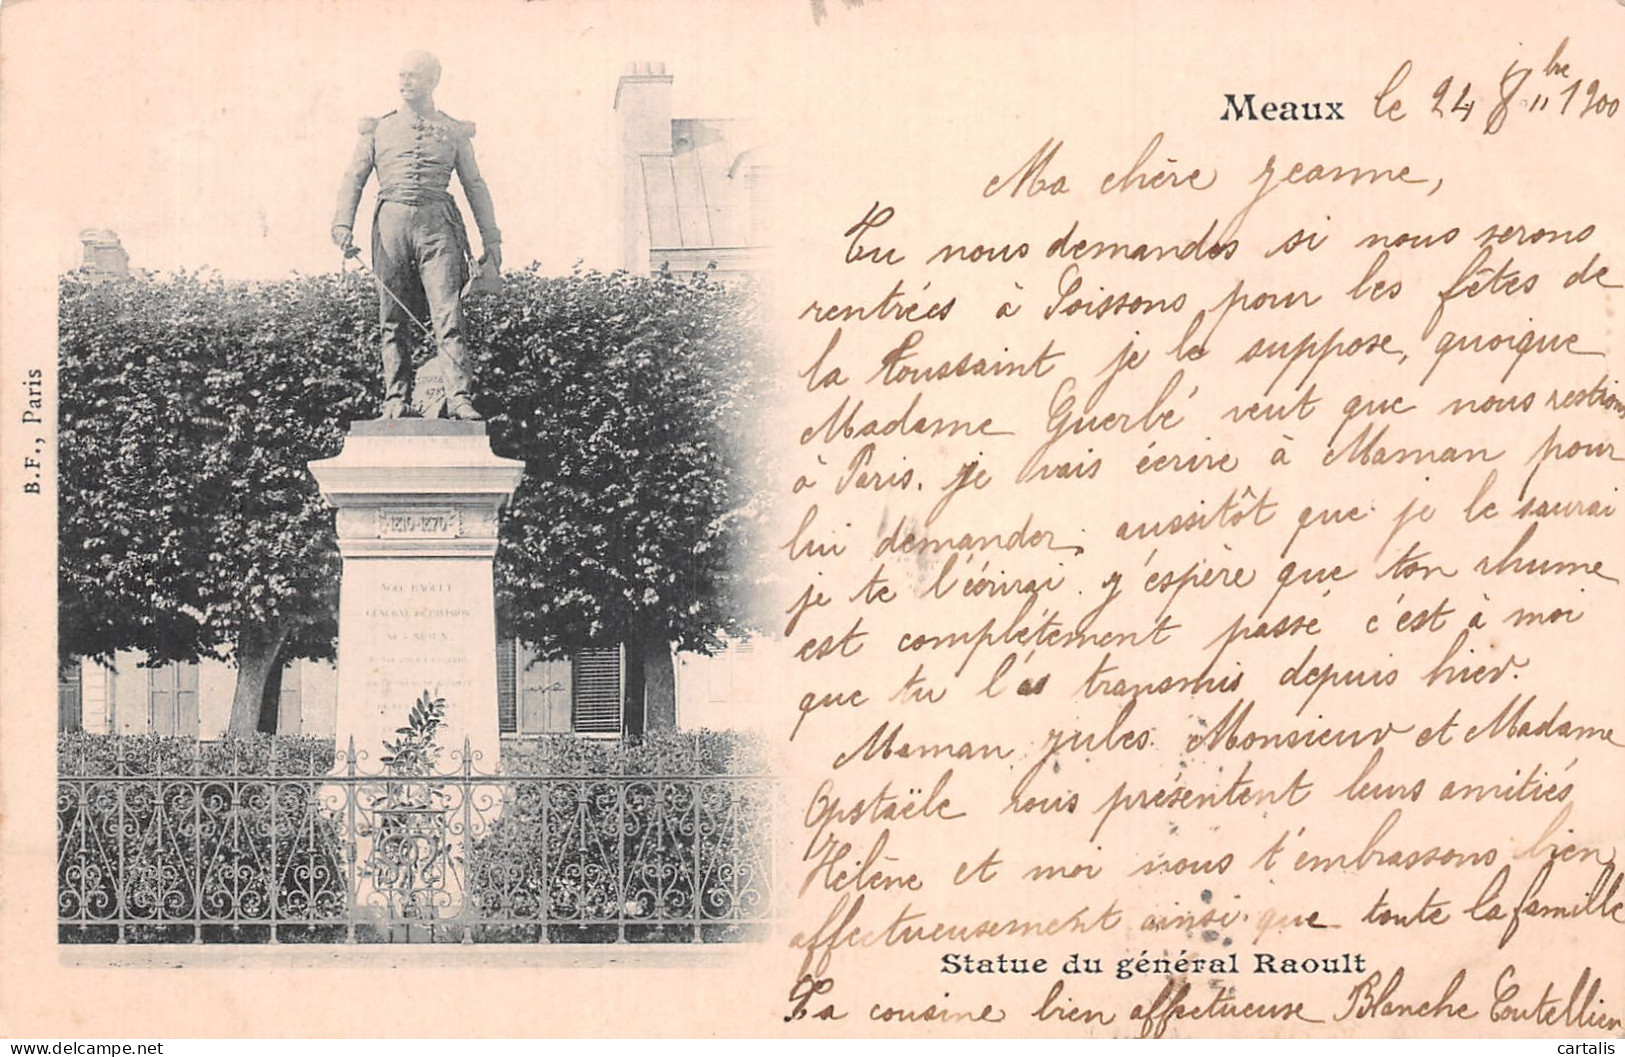 Meaux le 24 8bre 1900
Ma chère Jeanne,
Tu nous demandes si nous serons
rentrées à Soissons pour les fêtes de
la Toussaint je le suppose, quoique
Madame Guerbé veut que nous restions
à Paris. je vais écrire à Maman pour
lui demander, aussitôt que je le saurai
je te l'écrirai. j'espère que ton rhume
est complètement passé c'est à moi
que tu l'as transmis depuis hier.
Maman Jules Monsieur et Madame
vous présentent leurs amitiés
Hélène et moi nous t'embrassons bien
affectueusement ainsi que toute la famille
Statue du général Raoult
Ta cousine bien affectueuse Blanche Toutellier
B.F., Paris
1810-1870
NOEL RAOULT
GÉNÉRAL DE DIVISION
NÉ À MEAUX
cartalis